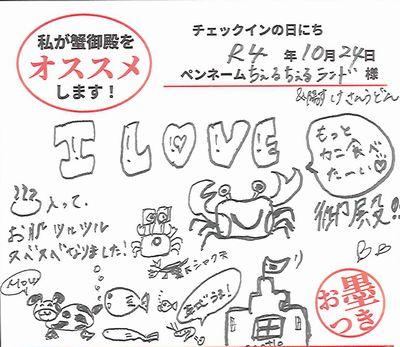 私が蟹御殿を
オススメ
します！
チェックインの日にち
R4 年 10月 24日
ペンネーム ちぇるちぇるランド 様
I LOVE
もっと
カニ食べ
たーい
御殿!!
入って、
お肌 ツルツル
スベスベなりました！
MOW
お墨つき